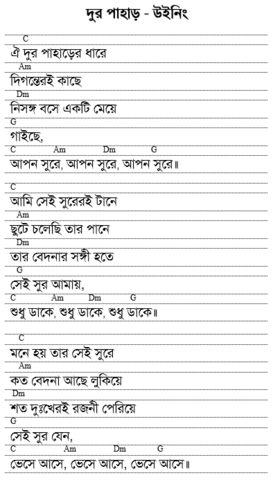 দুর পাহাড় - উইনিং
C
ঐ দুর পাহাড়ের ধারে
Am
দিগন্তেরই কাছে
Dm
নিসঙ্গ বসে একটি মেয়ে
G
গাইছে,
C Am Dm G
আপন সুরে, আপন সুরে, আপন সুরে॥
C
আমি সেই সুরেরই টানে
Am
ছুটে চলেছি তার পানে
Dm
তার বেদনার সঙ্গী হতে
G
সেই সুর আমায়,
C Am Dm G
শুধু ডাকে, শুধু ডাকে, শুধু ডাকে॥
C
মনে হয় তার সেই সুরে
Am
কত বেদনা আছে লুকিয়ে
Dm
শত দুঃখেরই রজনী পেরিয়ে
G
সেই সুর যেন,
C Am Dm G
ভেসে আসে, ভেসে আসে, ভেসে আসে॥